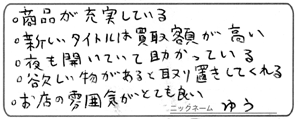 ○商品が充実している
○新しいタイトルは買取額が高い
○夜も開いていて助かっている
○欲しい物があると取り置きしてくれる
○お店の雰囲気がとても良い
ニックネーム ゆう